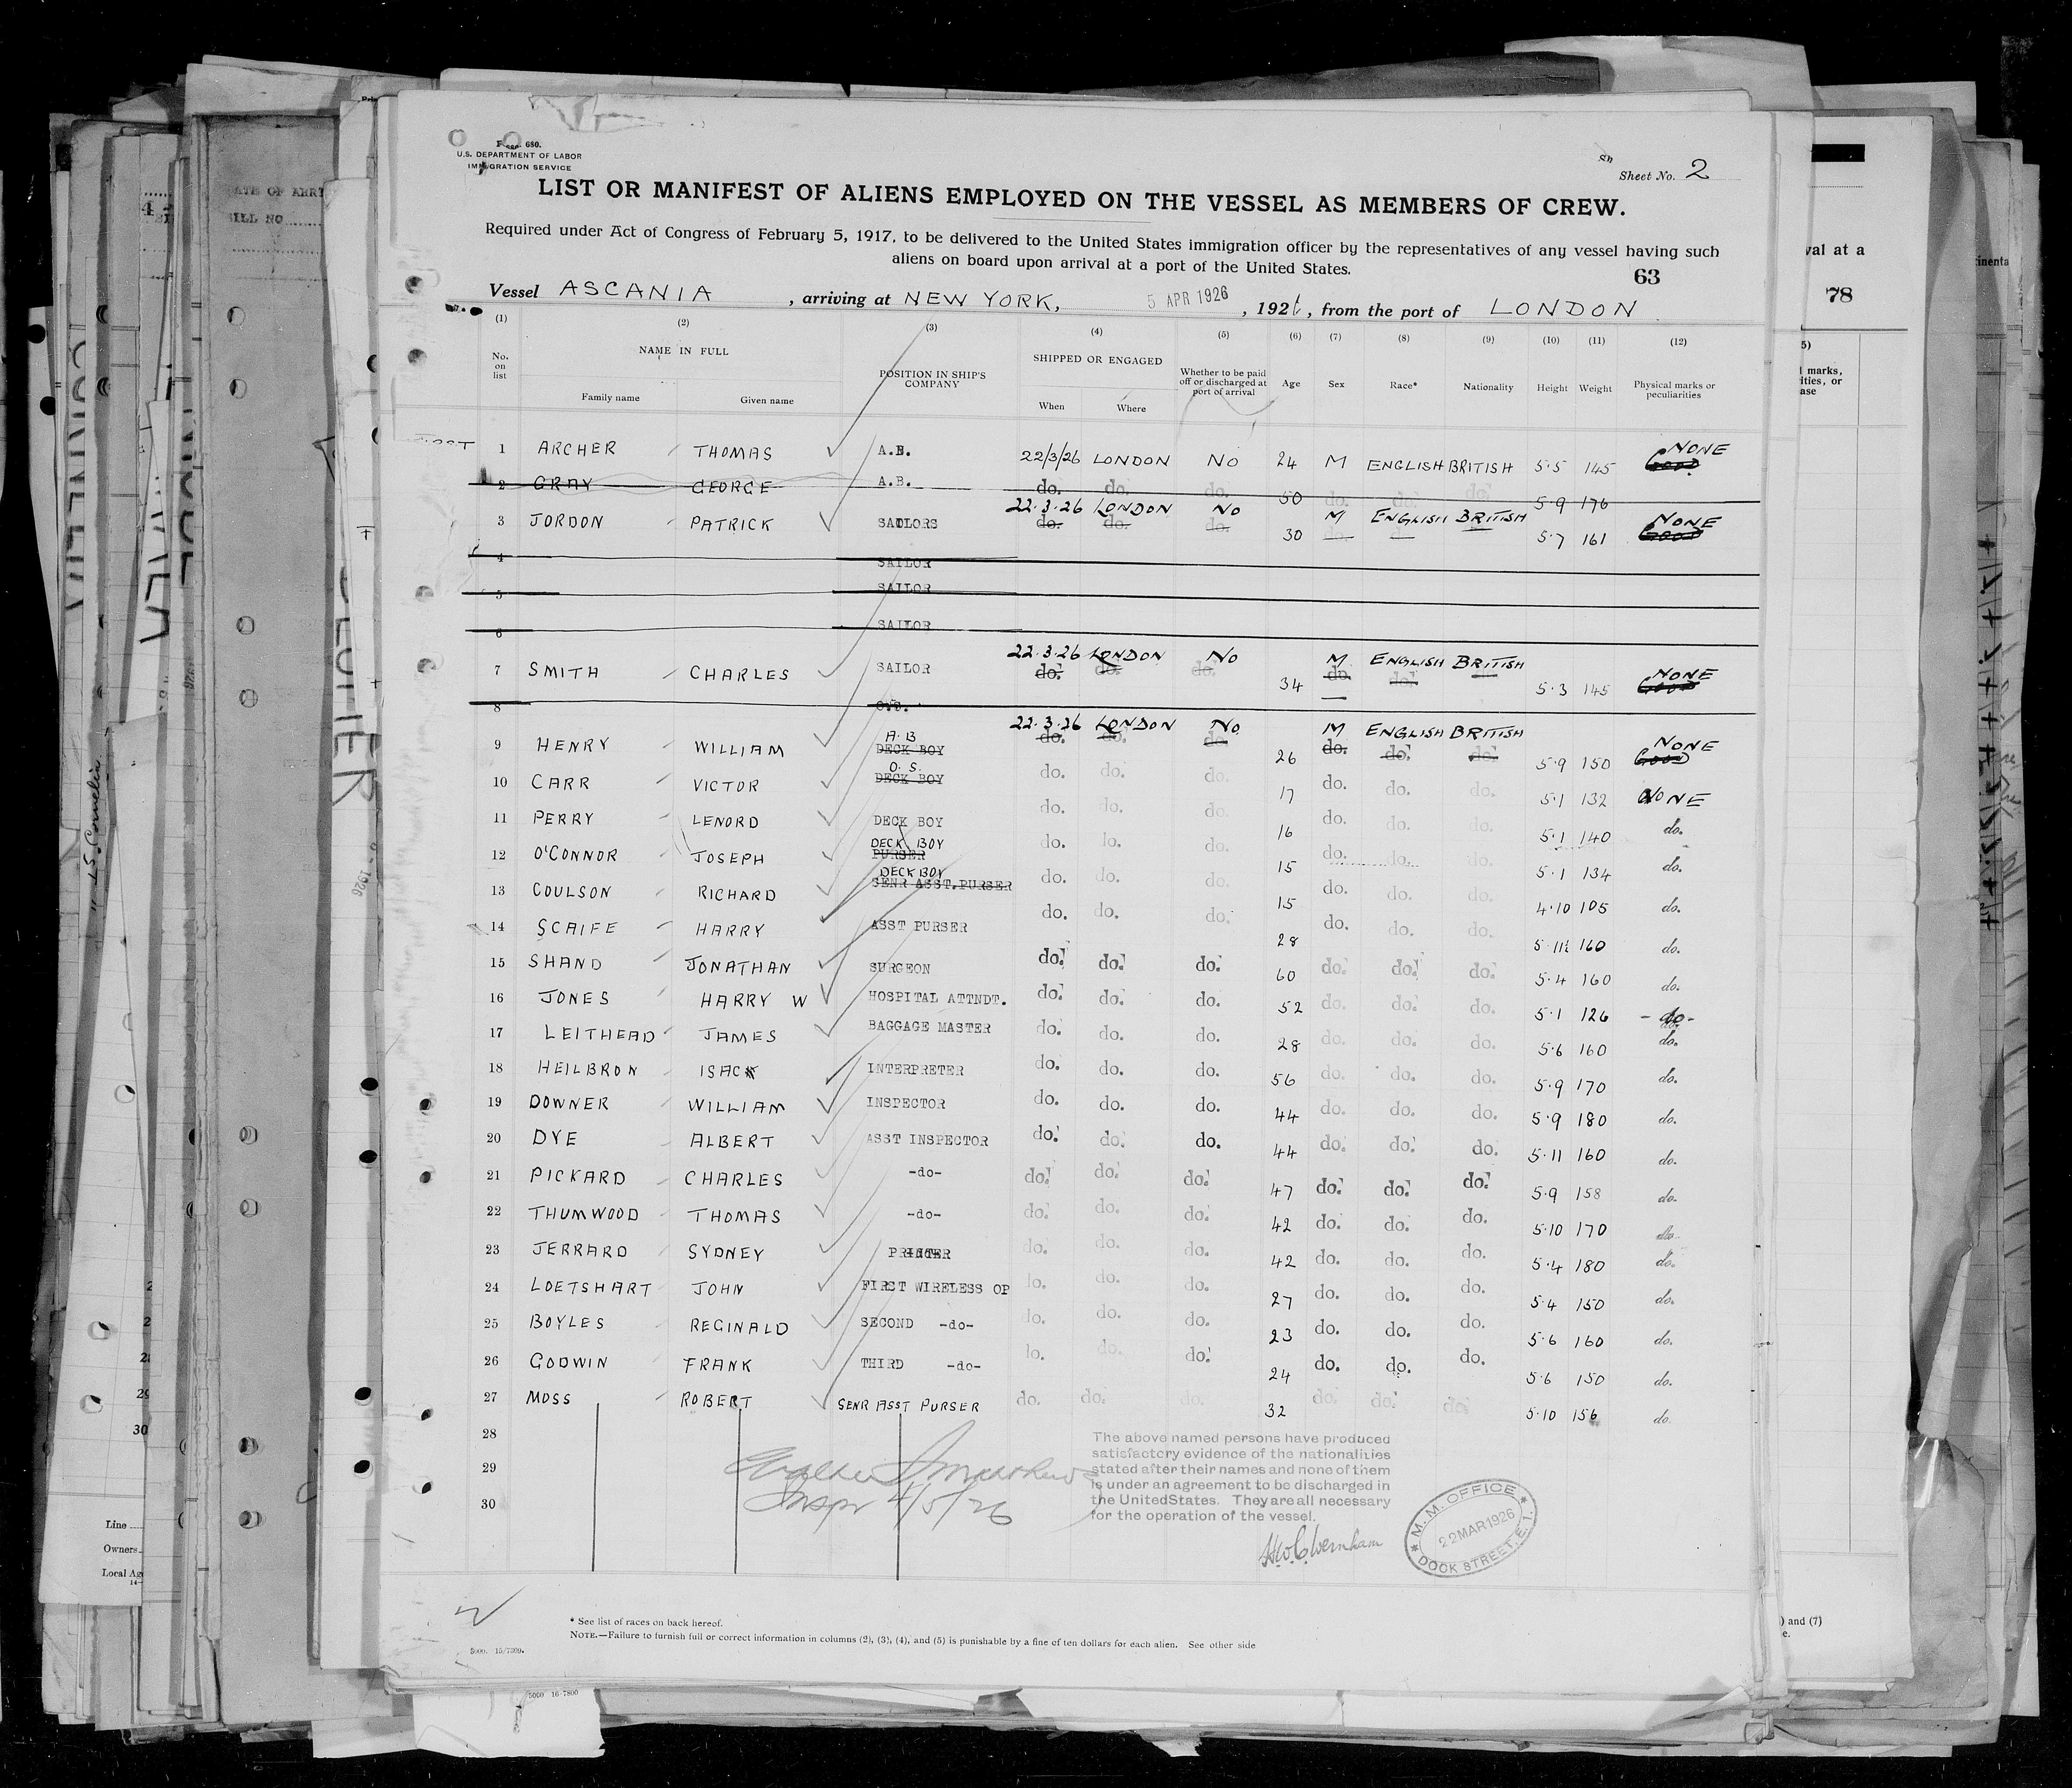 Form 680.
U.S. DEPARTMENT OF LABOR
IMMIGRATION SERVICE
Sheet No. 2
LIST OR MANIFEST OF ALIENS EMPLOYED ON THE VESSEL AS MEMBERS OF CREW.
Required under Act of Congress of February 5, 1917, to be delivered to the United States immigration officer by the representatives of any vessel having such
aliens on board upon arrival at a port of the United States.
63
Vessel ASCANIA, arriving at NEW YORK, 5 APR 1926, 1926, from the port of LONDON
(1) (2) (3) (4) (5) (6) (7) (8) (9) (10) (11) (12)
No. on list NAME IN FULL Family name Given name POSITION IN SHIP'S COMPANY SHIPPED OR ENGAGED When Where Whether to be paid off or discharged at port of arrival Age Sex Race* Nationality Height Weight Physical marks or peculiarities
1 ARCHER THOMAS A.B. 22/3/26 LONDON NO 24 M ENGLISH BRITISH 5·5 145 GOOD NONE
2 GRAY GEORGE A.B. do. do. do. 50 do. do. do. 5·9 176
3 JORDON PATRICK SAILORS 22.3.26 LONDON NO do. do. do. 30 M ENGLISH BRITISH 5·7 161 GOOD NONE
4 SAILOR
5 SAILOR
6 SAILOR
7 SMITH CHARLES SAILOR 22.3.26 LONDON NO do. do. do. 34 M do. ENGLISH do. BRITISH 5·3 145 GOOD NONE
8
9 HENRY WILLIAM A.B DECK BOY 22.3.26 LONDON NO do. do. do. 26 M do. ENGLISH do. BRITISH do. 5·9 150 GOOD NONE
10 CARR VICTOR O.S. DECK BOY do. do. do. 17 do. do. do. 5·1 132 NONE
11 PERRY LENORD DECK BOY do. do. do. 16 do. do. do. 5·1 140 do.
12 O'CONNOR JOSEPH DECK BOY PURSER do. do. do. 15 do. do. do. 5·1 134 do.
13 COULSON RICHARD DECK BOY SENR ASST. PURSER do. do. do. 15 do. do. do. 4·10 105 do.
14 SCAIFE HARRY ASST PURSER do. do. do. 28 do. do. do. 5·11½ 160 do.
15 SHAND JONATHAN SURGEON do. do. do. 60 do. do. do. 5·4 160 do.
16 JONES HARRY W HOSPITAL ATTNDT. do. do. do. 52 do. do. do. 5·1 126 -do-
17 LEITHEAD JAMES BAGGAGE MASTER do. do. do. 28 do. do. do. 5·6 160 do.
18 HEILBRON ISAC INTERPRETER do. do. do. 56 do. do. do. 5·9 170 do.
19 DOWNER WILLIAM INSPECTOR do. do. do. 44 do. do. do. 5·9 180 do.
20 DYE ALBERT ASST INSPECTOR do. do. do. 44 do. do. do. 5·11 160 do.
21 PICKARD CHARLES -do- do. do. do. 47 do. do. do. 5·9 158 do.
22 THUMWOOD THOMAS -do- do. do. do. 42 do. do. do. 5·10 170 do.
23 JERRARD SYDNEY PRINTER do. do. do. 42 do. do. do. 5·4 180 do.
24 LOETSHART JOHN FIRST WIRELESS OP do. do. do. 27 do. do. do. 5·4 150 do.
25 BOYLES REGINALD SECOND -do- do. do. do. 23 do. do. do. 5·6 160 do.
26 GODWIN FRANK THIRD -do- do. do. do. 24 do. do. do. 5·6 150 do.
27 MOSS ROBERT SENR ASST PURSER do. do. do. 32 do. do. do. 5·10 156 do.
28
29
30
Inspr 4/5/26
The above named persons have produced
satisfactory evidence of the nationalities
stated after their names and none of them
is under an agreement to be discharged in
the United States. They are all necessary
for the operation of the vessel.
M. M. OFFICE
22 MAR 1926
DOCK STREET, E.1.
* See list of races on back hereof.
NOTE.—Failure to furnish full or correct information in columns (2), (3), (4), and (5) is punishable by a fine of ten dollars for each alien. See other side
5000 16-7800
78
val at a
) and (7)
Line
Owners
Local Ag